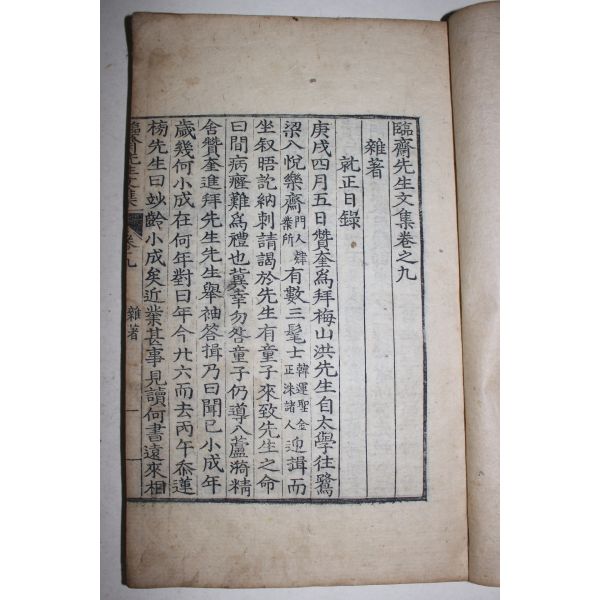 臨齋先生文集卷之九
雜著
就正日錄
庚戌四月五日贊奎爲拜梅山洪先生自太學往鷺
梁入悅樂齋門人肄業所有數三髦士韓運聖金正洙諸人迎揖而
坐叙晤訖納刺請謁於先生有童子來致先生之命
曰間病癃難爲禮也冀幸勿咎童子仍導入蘆漪精
舍贊奎進拜先生先生擧袖答揖乃曰聞已小成年
歲幾何小成在何年對曰年今廿六而去丙午忝蓮
榜先生曰妙齡小成矣近業甚事見讀何書遠來相
臨齋先生文集 卷九 雜著 一